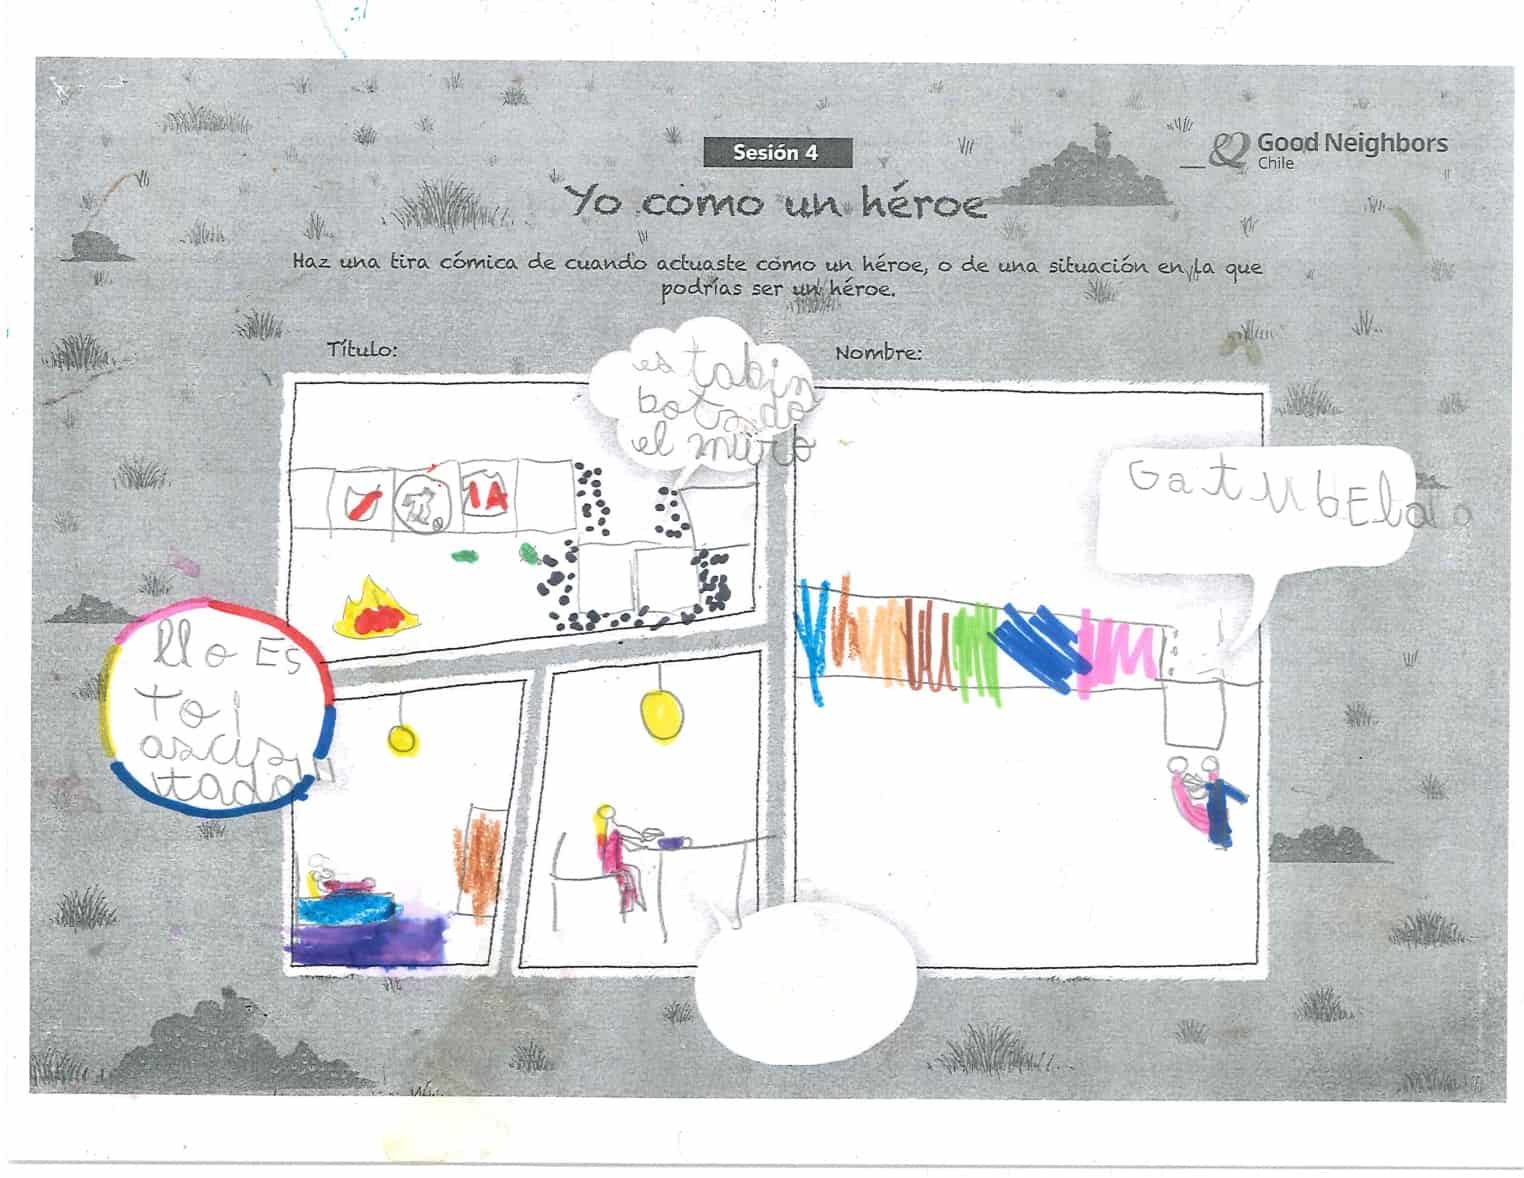 Sesión 4
Good Neighbors
Chile
Yo como un héroe
Haz una tira cómica de cuando actuaste como un héroe, o de una situación en la que
podrías ser un héroe.
Título:
Nombre:
es tabin
botado
el muro
GatubEla
1A
llo Es
toi